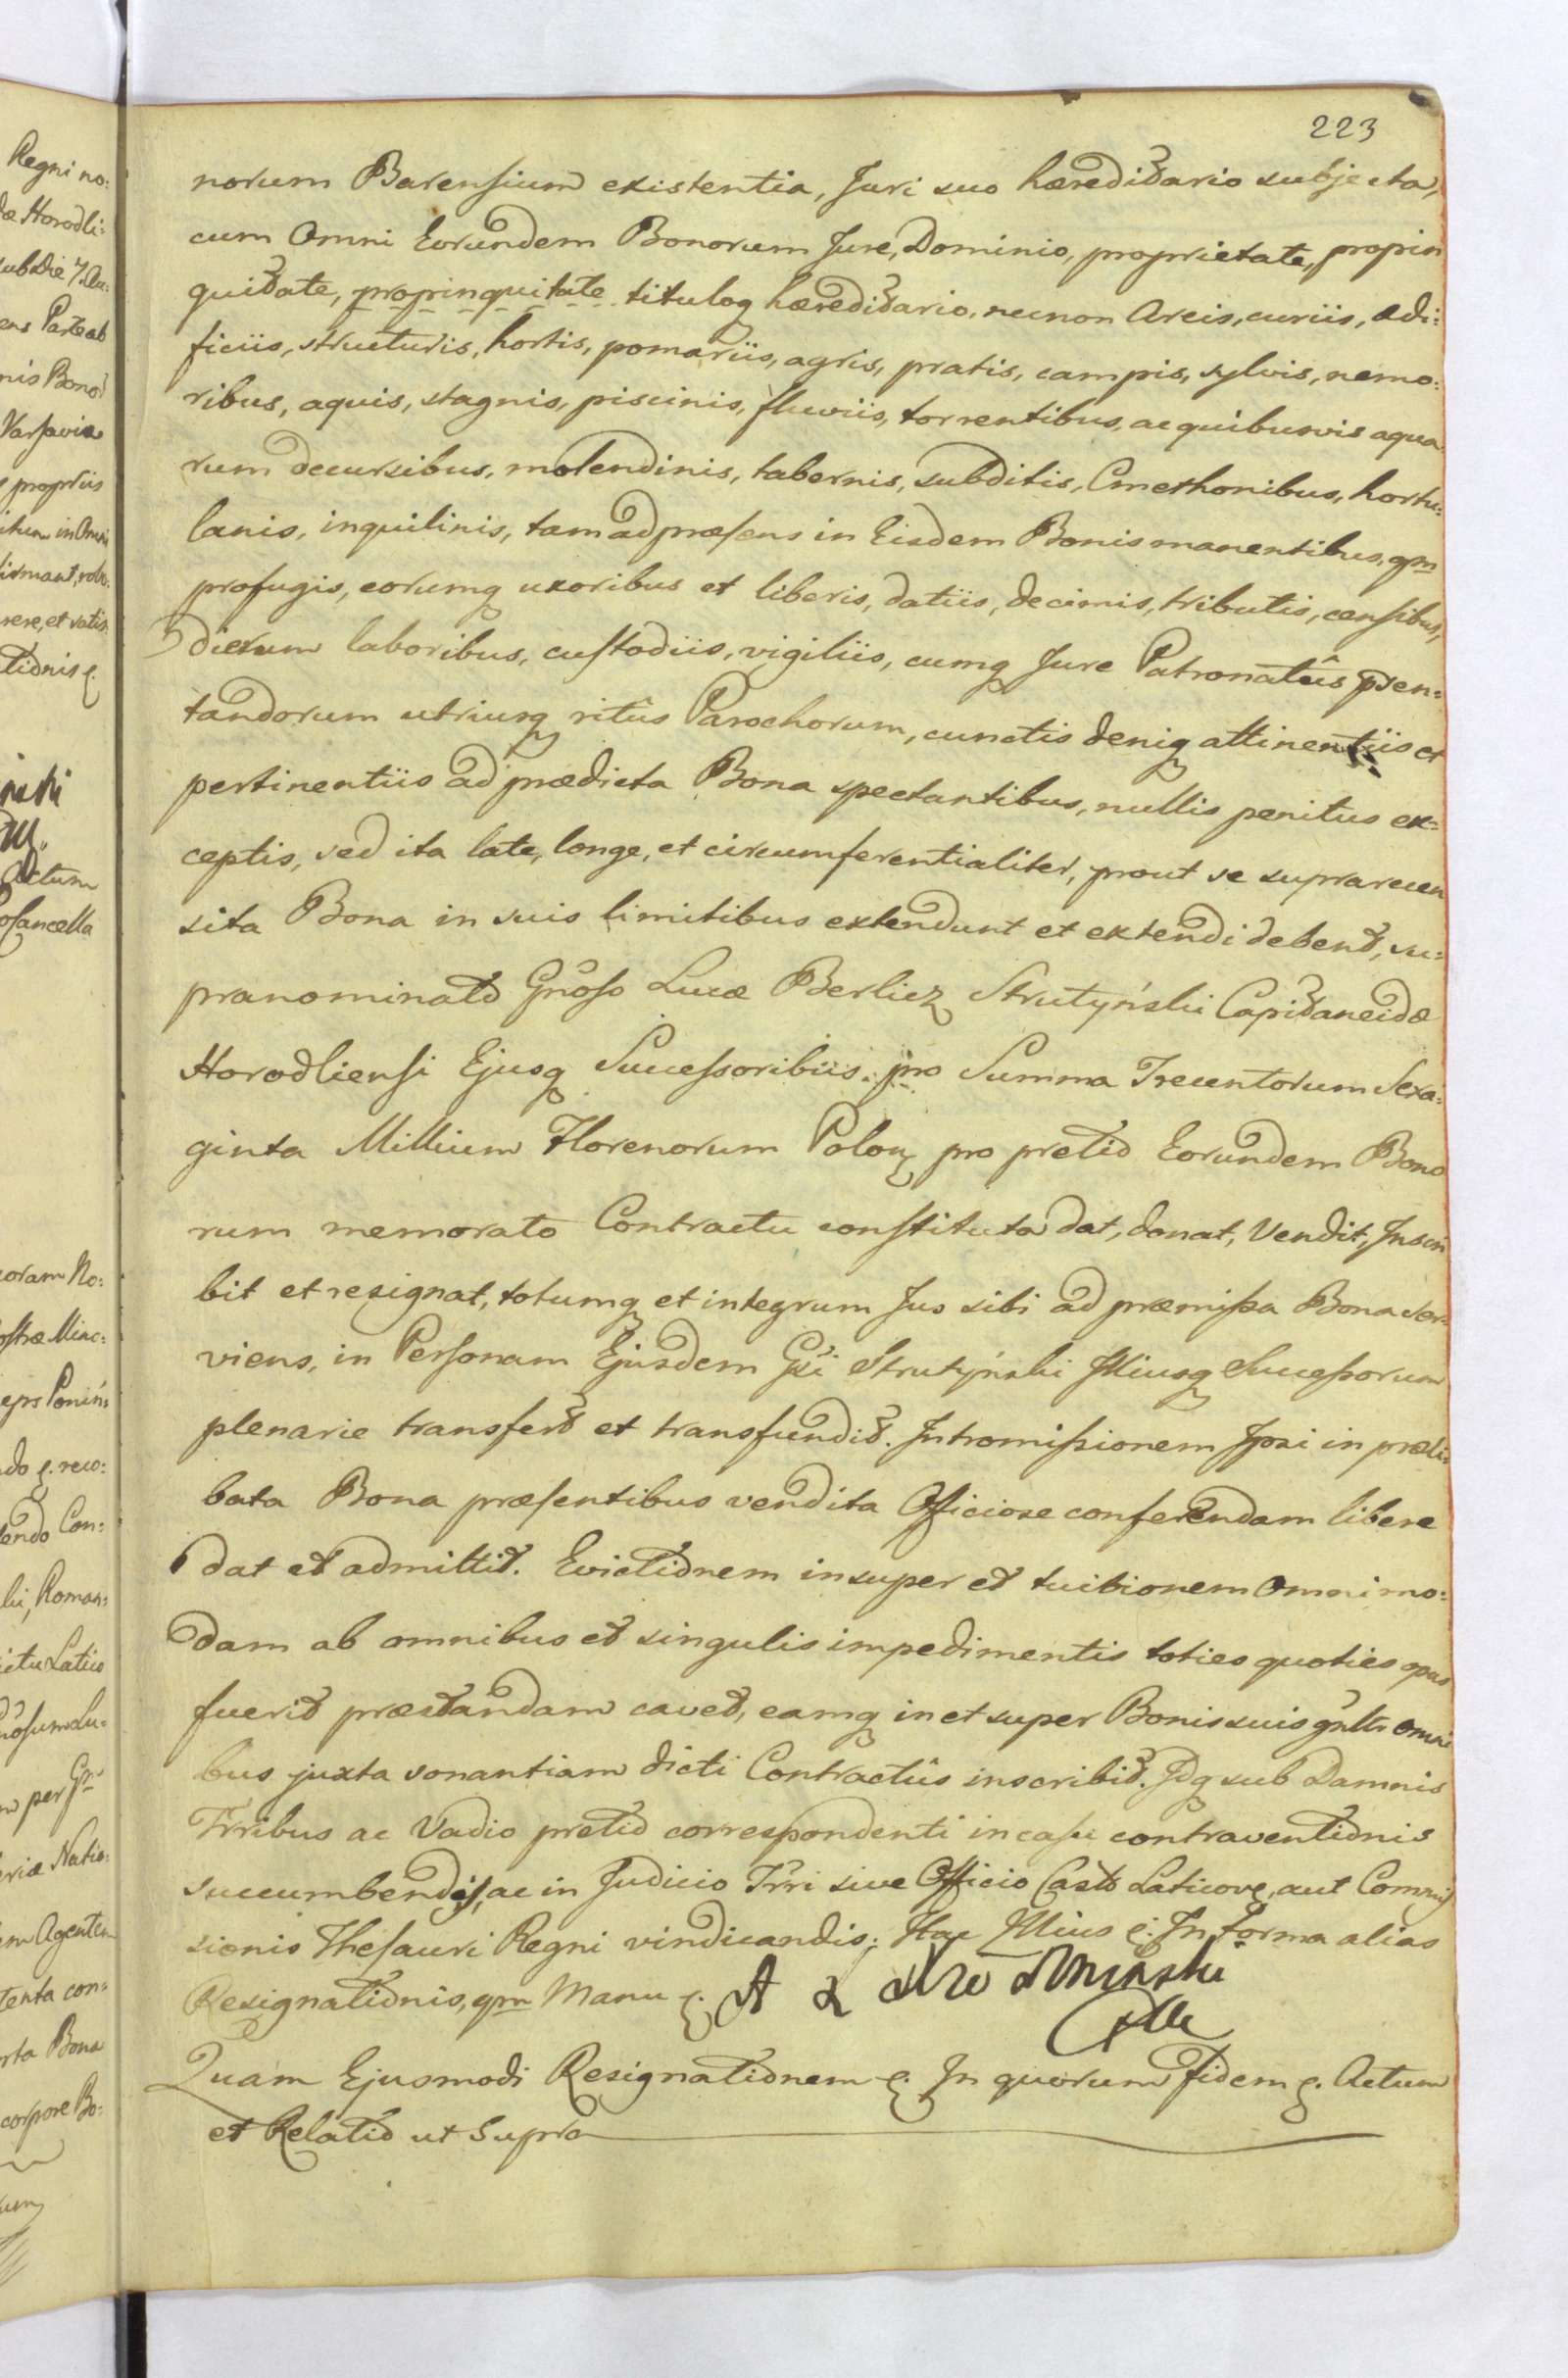 223
norum Barensium existentia, Juri suo hæreditario subjecta,
cum Omni Eorundem Bonorum Jure, Dominio, proprietate, propin
quitate, propinquitate tituloq hæreditario, necnon Areis, curiis, ædi:
ficiis, structuris, hortis, pomariis, agris, pratis, campis, sylvis, nemo:
ribus, aquis, stagnis, piscinis, fluviis, torrentibus, ac quibusvis aqua
rum decursibus, molendinis, tabernis, subditis, Cmethonibus, hortu:
lanis, inquilinis, tam ad præsens in Eisdem Bonis manentibus, qm
profugis, eorumq uxoribus et liberis, datiis, decimis, tributis, censibus,
dierum laboribus, custodiis, vigiliis, cumq Jure Patronatûs psen:
tandorum utriusq ritûs Parochorum, cunctis deniq attinentiis et
pertinentiis ad prædicta Bona spectantibus, nullis penitus ex:
ceptis, sed ita late, longe, et circumferentialiter, prout se supra recen
sita Bona in suis limitibus extendunt et extendi debent, su:
pranominato Gnôso Lucæ Berlicz Strutyński Capitaneidæ
Horodliensi Ejusq Successoribus. pro Summa Trecentorum Sexa:
ginta Millium Florenorum Polon pro pretio Eorundem Bono
rum memorato Contractu constituta dat, donat, Vendit, Inscri
bit et resignat, totumq et integrum Jus sibi ad præmissa Bona ser:
viens, in Personam Ejusdem Gsi Strutyński Illiusq Successorum
plenarie transfert et transfundit. Intromissionem Ipsi in præli:
bata Bona præsentibus vendita Officiose conferendam libere
dat et admittit. Evictionem insuper et tuitionem Omnimo:
dam ab omnibus et singulis impedimentis toties quoties opus
fuerit præstandam cavet, eamq in et super Bonis suis gnltr omni
bus juxta sonantiam dicti Contractûs inscribit. Idq sub Damnis
Trribus ac Vadio pretio correspondenti in casu contraventionis
succumbendis, ac in Judicio Trri sive Officio Casto Laticov, aut Commis
sionis Thesauri Regni vindicandis; Hac Illius e. In forma alias
Resignationis, qm Manu e. A
Quam Ejusmodi Resignationem e. In quorum fidem e. Actum
et Relatio ut Supra